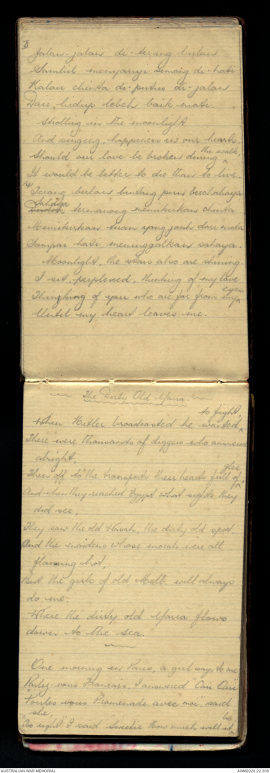 3)
Jalan-jalan di-terang bulan
Sambil menyanyi senang di-hati
Kalau chinta di-putus di-jalan
Dari hidup lebeh baik mati.
Strolling in the moonlight
And singing, happiness in our hearts
Should our love be broken during the walk
It would be better to die than to live.
4)
Terang bulan bintang pun berchahaya
termenong memikirkan chinta
Memikirkan tuan yang jauh dari mata
Sampai hati meninggalkan sahaya.
Moonlight, the stars also are shining.
I sit perplexed, thinking of my love
Thinking of you who are far from my eyes
Until my heart leaves me.
The Dirty Old Yarra.
When Hitler broadcasted he wanted to fight,
There were thousands of diggers who answered
alright.
Then off to the transports their hearts full of glee,
And when they reached Egypt what sights they
did see,
They saw the old Nile, the dirty old spot
And the maidens whose morals were all
flaming hot,
But the girls of old Melb. will always
do me.
Where the dirty old Yarra flows
down to the sea.
One morning in Paris, a girl says to me
Parlez-vous Francais, I answered "Oui Oui"
Voulez vous Promenade avec moi said
she,
Too right I said Sweetie How much will it be
Australian War Memorial
AWM2020.22.209